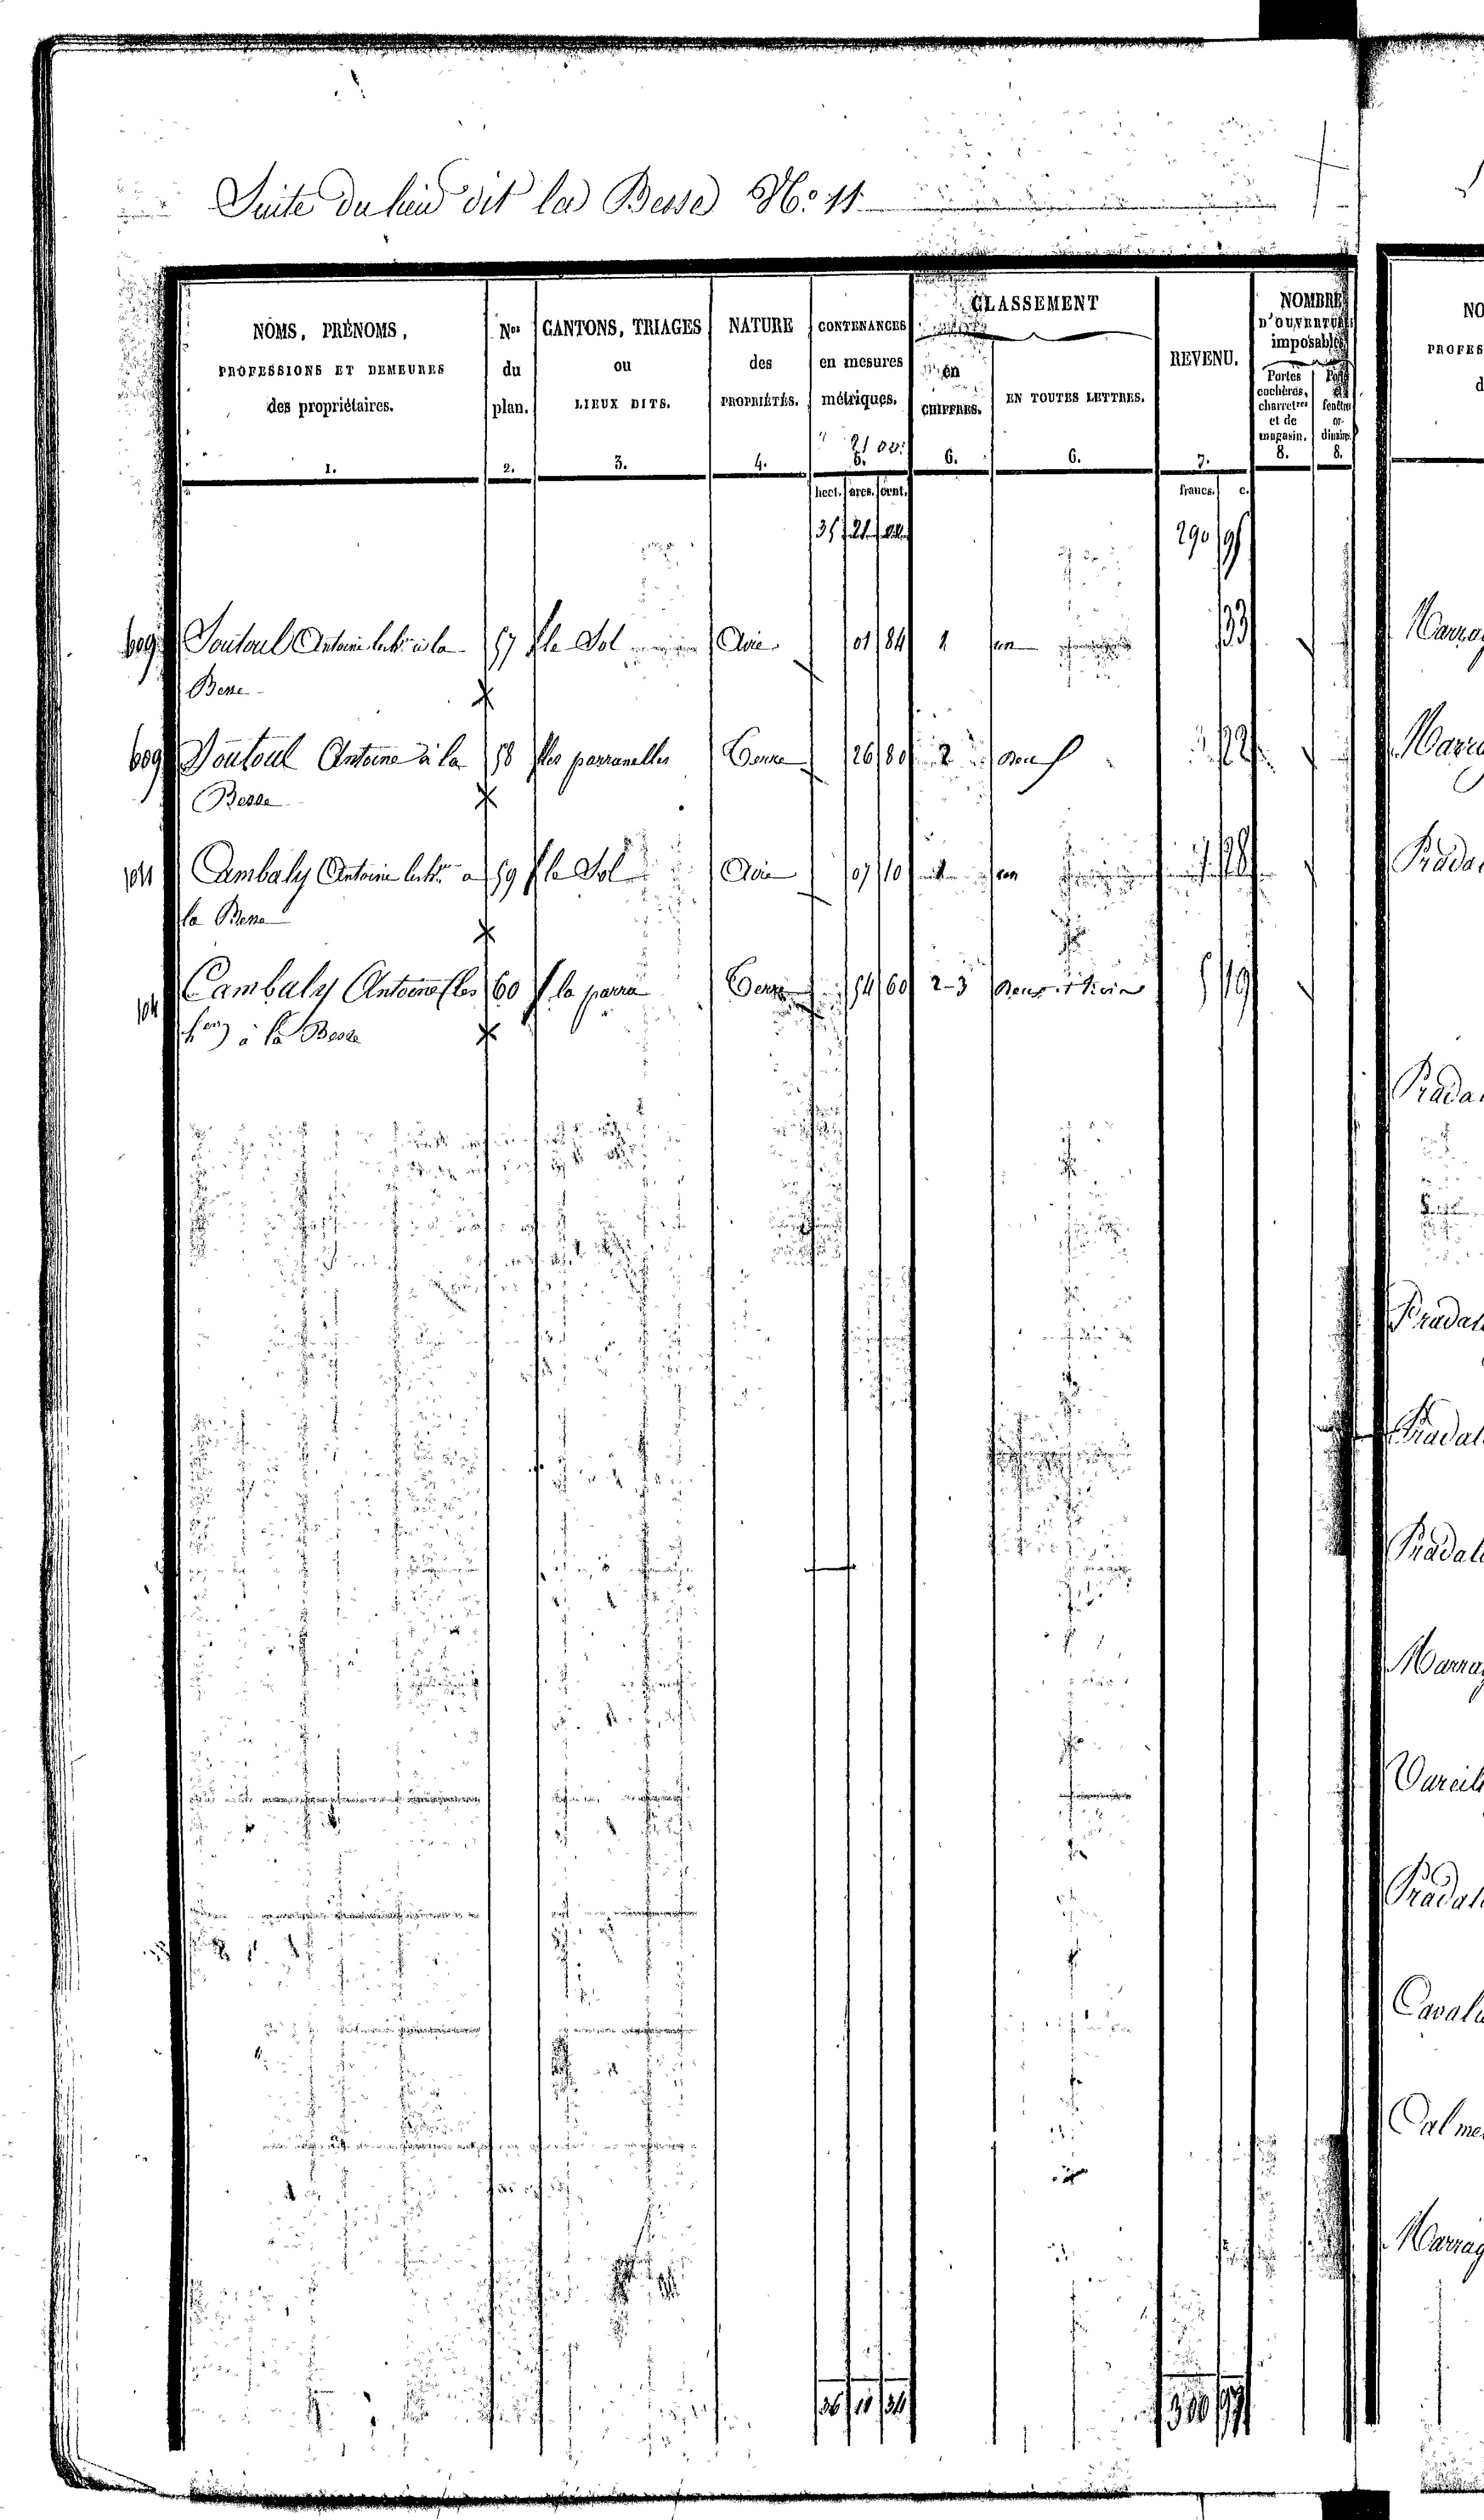 Suite du lieu dit la Besse No 11
NOMS, PRÉNOMS, PROFESSIONS ET DEMEURES des propriétaires. 1.
Nos du plan. 2.
CANTONS, TRIAGES ou LIEUX DITS. 3.
NATURE des PROPRIÉTÉS. 4.
CONTENANCES en mesures métriques. 5.
CLASSEMENT
en CHIFFRES. 6.
EN TOUTES LETTRES. 6.
REVENU. 7.
NOMBRE D'OUVERTURES imposables
Portes cochères, charretres et de magasin. 8.
8.
hect. ares. cent. francs. c.
35 21 290 95
609 Soutoul Antoine à la 57 le Sol Aire 01 84 1 un 33
Besse
609 Soutoul Antoine à la 58 les parranelles Terre 26 80 2
Besse
Cambaly Antoine a 59 le Sol Aire 07 10 1 un 1 28
la Besse
Cambaly Antoine (les 60 la parra Terre 54 60 2-3 5 19
à la Besse
36 11 34
NO
PROFES
d
Pradal
Pradal
Pradal
Vareil
Pradal
Caval
Calme
Marrag